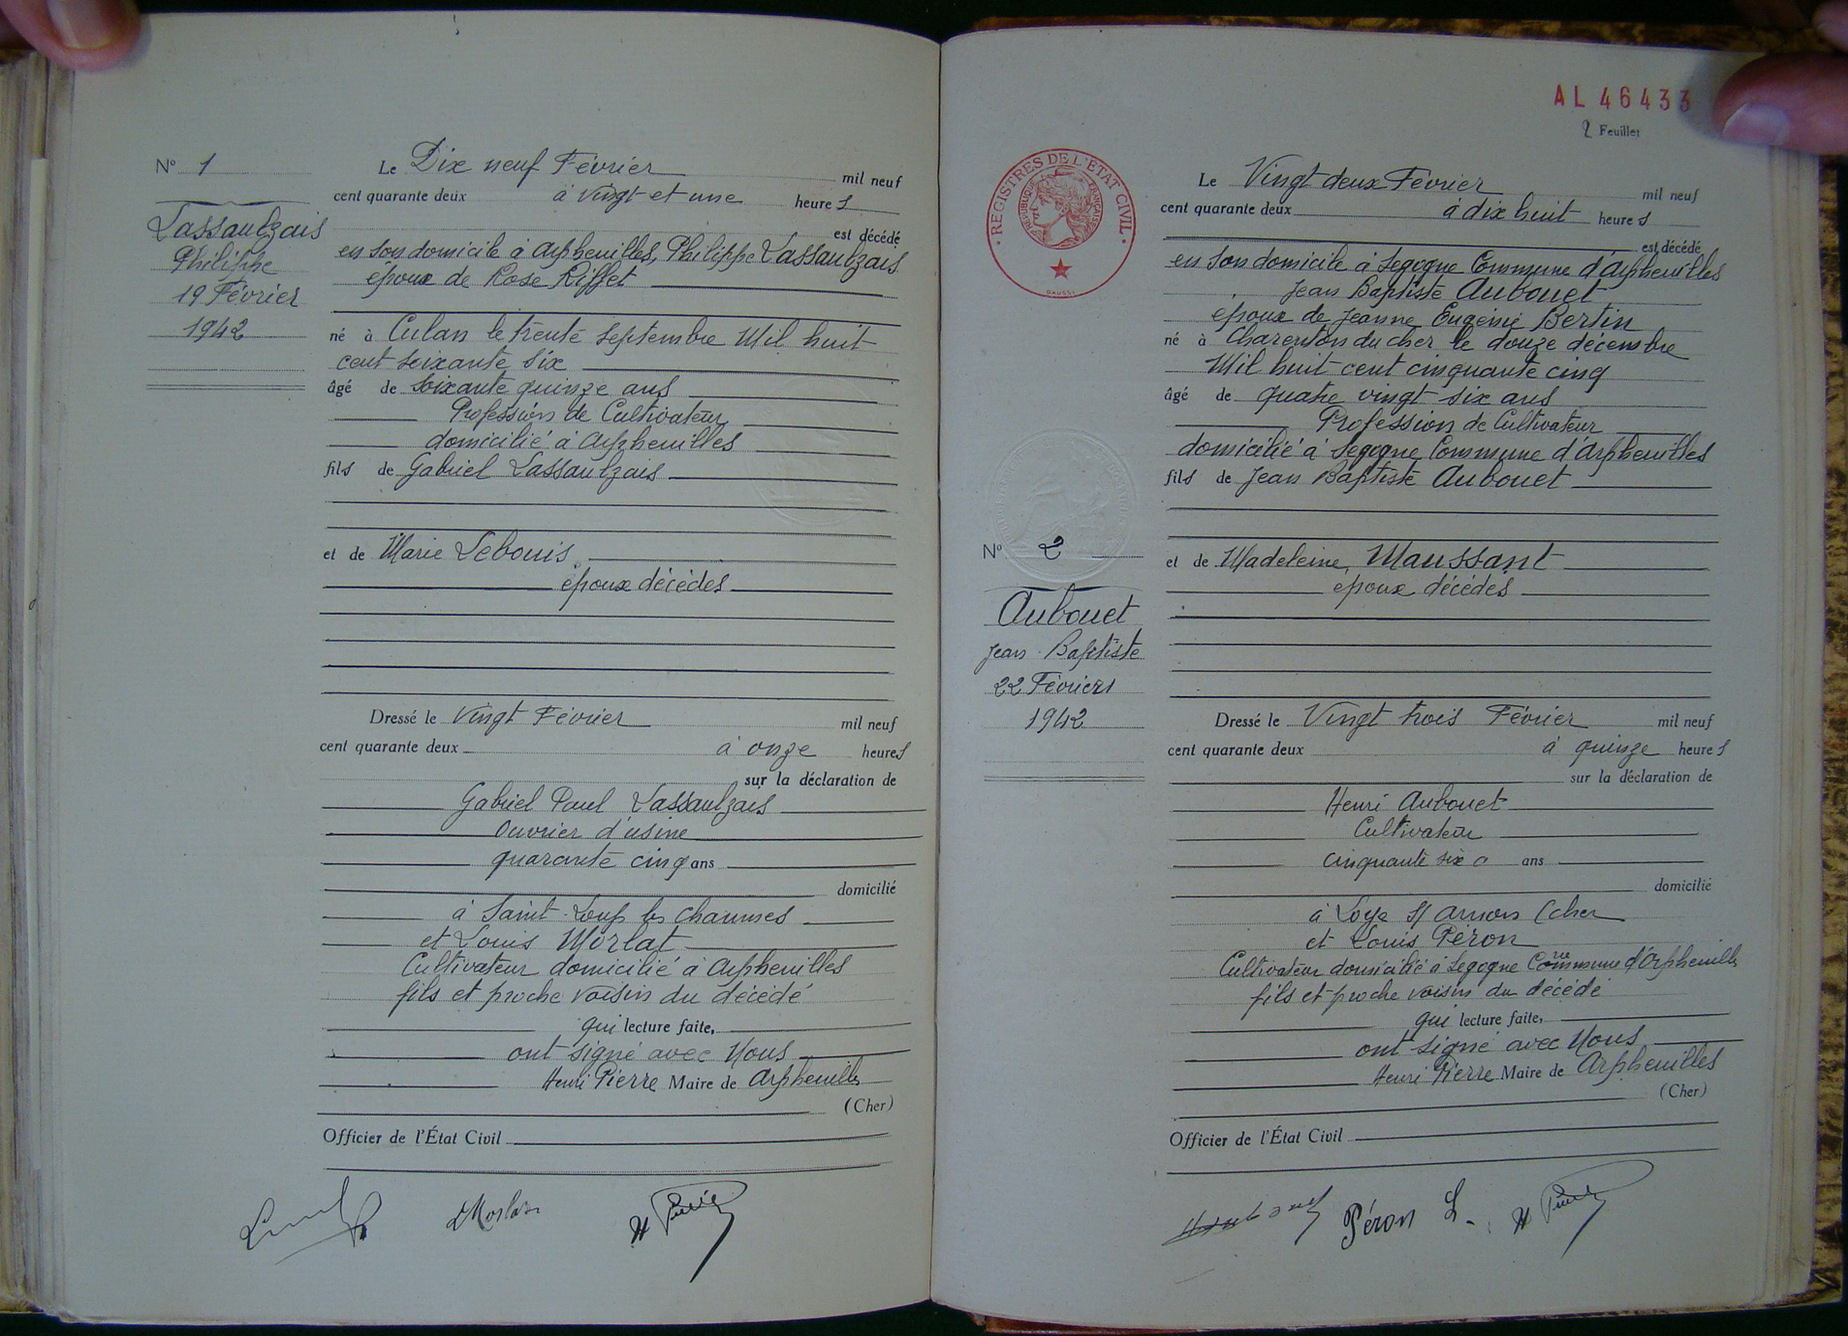 N° 1
Lassaulzais
Philippe
19 Février
1942
Le Dix neuf Février mil neuf
cent quarante deux à vingt et une heures
est décédé
en son domicile à Arpheuilles, Philippe Lassaulzais
époux de Rose Riffet
né à Culan le trente septembre Mil huit
cent soixante six
âgé de soixante quinze ans
Profession de Cultivateur
domicilié à Arpheuilles
fils de Gabriel Lassaulzais
et de Marie Lebouis
époux décédés
Dressé le Vingt Février mil neuf
cent quarante deux à onze heures
sur la déclaration de
Gabriel Paul Lassaulzais
Ouvrier d'usine
quarante cinq ans
domicilié
à Saint-Loup les Chaumes
et Louis Morlat
Cultivateur domicilié à Arpheuilles
fils et proche voisin du décédé
qui lecture faite,
ont signé avec Nous
Henri Pierre Maire de Arpheuilles
(Cher)
Officier de l'État Civil
AL 46433
2 Feuillet
REGISTRES DE L'ÉTAT CIVIL
RÉPUBLIQUE FRANÇAISE
N° 2
Aubouet
Jean Baptiste
22 Février
1942
Le Vingt deux Février mil neuf
cent quarante deux à dix huit heures
est décédé
en son domicile à Segogne Commune d'Arpheuilles
Jean Baptiste Aubouet
époux de Jeanne Eugénie Bertin
né à Charenton du cher le douze décembre
Mil huit cent cinquante cinq
âgé de quatre vingt six ans
Profession de Cultivateur
domicilié à Segogne Commune d'Arpheuilles
fils de Jean Baptiste Aubouet
et de Madeleine Maussant
époux décédés
Dressé le Vingt trois Février mil neuf
cent quarante deux à quinze heures
sur la déclaration de
Henri Aubouet
Cultivateur
cinquante six ans
domicilié
à Loye s/ Arnon (cher
et Louis Péron
Cultivateur domicilié à Segogne Commune d'Arpheuilles
fils et proche voisin du décédé
qui lecture faite,
ont signé avec Nous
Henri Pierre Maire de Arpheuilles
(Cher)
Officier de l'État Civil
Péron L.